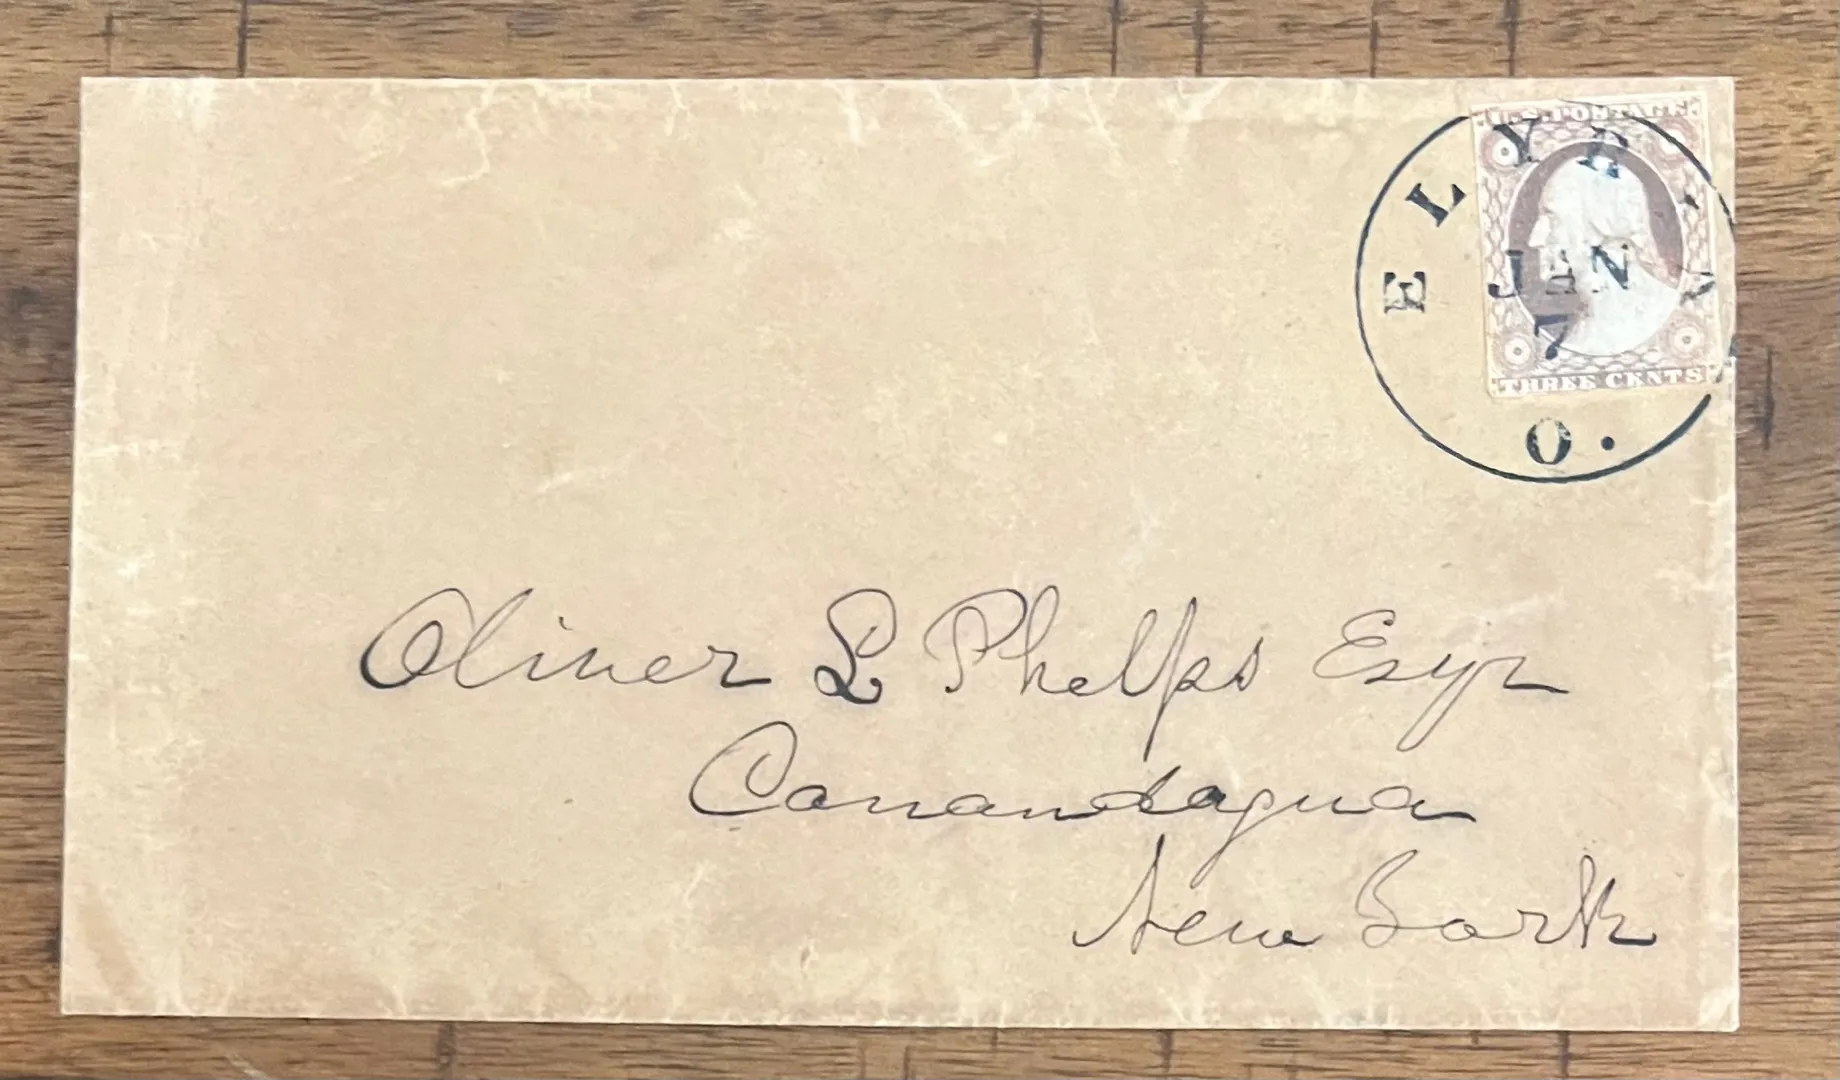 U.S. POSTAGE
ELYRIA
JAN
7
THREE CENTS
O.
Oliver L Phelps Esqr
Canandagua
New York